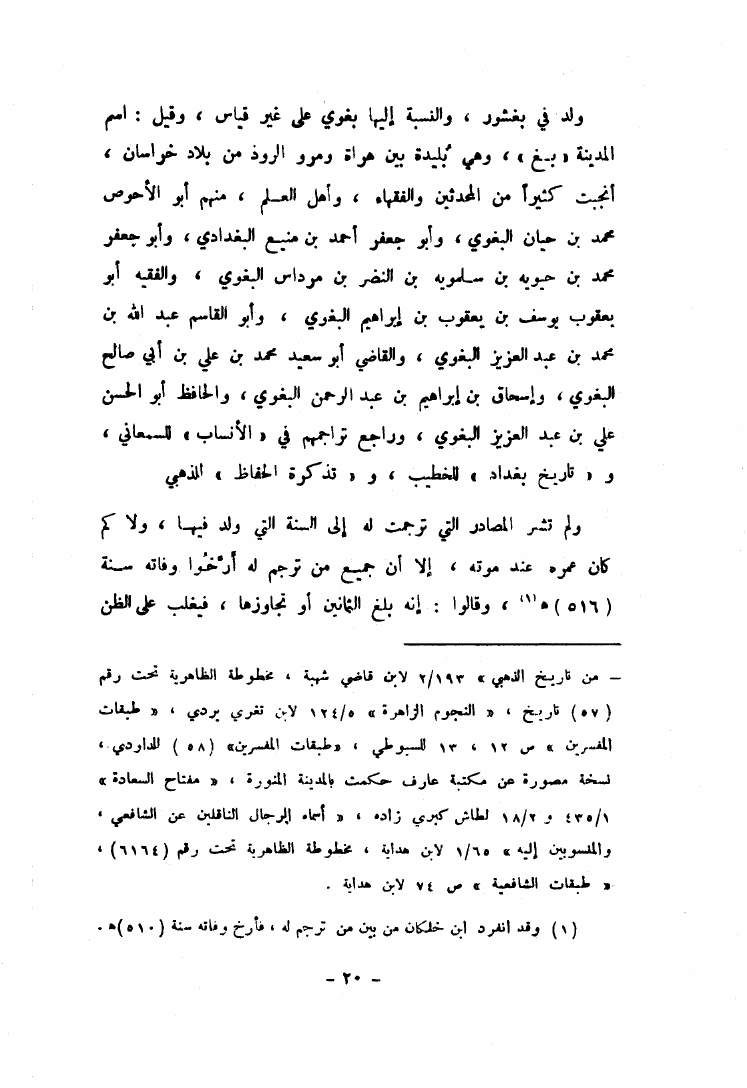 ولد في بغشور ، والنسبة إليها بغوي على غير قياس ، وقيل : اسم
المدينة « بـغ » ، وهي بُليدة بين هراة ومرو الروذ من بلاد خراسان ،
أنجبت كثيراً من المحدثين والفقهاء ، وأهل العـلم ، منهم أبو الأحوص
محمد بن حيان البغوي ، وأبو جعفر أحمد بن منيع البغدادي ، وأبو جعفر
محمد بن حيويه بن سلمويه بن النضر بن مرداس البغوي ، والفقيه أبو
يعقوب يوسف بن يعقوب بن إبراهيم البغوي ، وأبو القاسم عبد الله بن
محمد بن عبد العزيز البغوي ، والقاضي أبو سعيد محمد بن علي بن أبي صالح
البغوي ، وإسحاق بن إبراهيم بن عبد الرحمن البغوي ، والحافظ أبو الحسن
علي بن عبد العزيز البغوي ، وراجع تراجمهم في « الأنساب » للسمعاني ،
و « تاريخ بغداد » للخطيب ، و « تذكرة الحفاظ » الذهبي
ولم تشر المصادر التي ترجمت له إلى السنة التي ولد فيهـا ، ولا كم
كان عمره عند موته ، إلا أن جميـع من ترجم له أرَّخُوا وفاته سـنة
( ٥١٦ ) ه‍ (١) ، وقالوا : إنه بلغ الثمانين أو تجاوزها ، فيغلب على الظن
– من تاريخ الذهبي » ٢/١٩٣ لابن قاضي شهبة ، مخطوطة الظاهرية تحت رقم
( ٥٧ ) تاريخ ، « النجوم الزاهرة » ١٢٤/٥ لابن تغري بردي ، « طبقات
المفسرين » ص ١٢ ، ١٣ للسيوطي ، «طبقات المفسرين» (٥٨ ) للداودي ،
نسخة مصورة عن مكتبة عارف حكمت بالمدينة المنورة ، « مفتاح السعادة »
٤٣٥/١ و ١٨/٢ لطاش كبري زاده ، « أسماء الرجال الناقلين عن الشافعي ،
والمنسوبين إليه » ١/٦٥ لابن هداية ، مخطوطة الظاهرية تحت رقم (٦١٦٤) ،
« طبقات الشافعية » ص ٧٤ لابن هداية .
(١) وقد انفرد ابن خلكان من بين من ترجم له ، فأرخ وفاته سنة (٥١٠)ه‍ .
– ٢٠ –